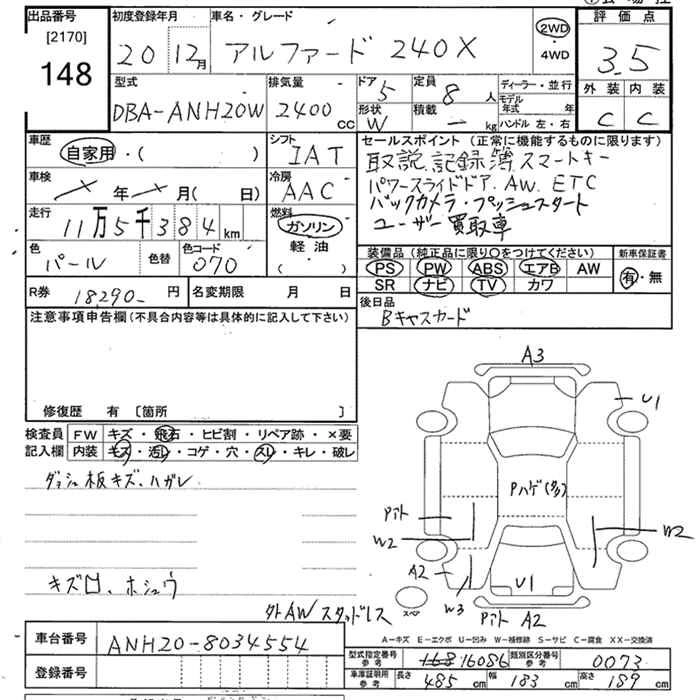 出品番号
[2170]
148
初度登録年月
20 12月
車名・グレード
アルファード 240X
2WD
・
4WD
評価点
3.5
外装 内装
C C
型式
DBA-ANH20W
排気量
2400 cc
ドア 5
形状 W
定員 8 人
積載 - kg
ディーラー・並行
モデル年式 年
ハンドル 左・右
車歴
自家用・( )
シフト
IAT
車検
× 年 × 月( 日)
冷房
AAC
走行
11万5千384 km
燃料
ガソリン
軽油
( ・ )
色
パール
色替
色コード
070
セールスポイント(正常に機能するものに限ります)
取説.記録簿 スマートキー
パワースライドドア.AW.ETC
バックカメラ・プッシュスタート
ユーザー買取車
装備品(純正品に限り○をつけてください)
PS PW ABS エアB AW
SR ナビ TV カワ
新車保証書
有・無
R券 18,290- 円
名変期限 月 日
後日品
Bキャスカード
注意事項申告欄(不具合内容等は具体的に記入して下さい)
修復歴 有 [箇所 ]
検査員記入欄
FW キズ・飛石・ヒビ割・リペア跡・×要
内装 キズ・汚レ・コゲ・穴・スレ・キレ・破レ
ダッシュ板キズ、ハガレ
キズ凹、ホシュウ
外AWスタッドレス
A3
U1
Pハゲ(多)
Pアト
W2
W2
A2
W3
U1
スペア
Pアト A2
A-キズ E-エクボ U-凹み W-補修跡 S-サビ C-腐食 XX-交換済
車台番号
ANH20-8034554
登録番号
型式指定番号 参考 16086
類別区分番号 参考 0073
車庫証明用 参考 長さ 485 cm 幅 183 cm 高さ 189 cm